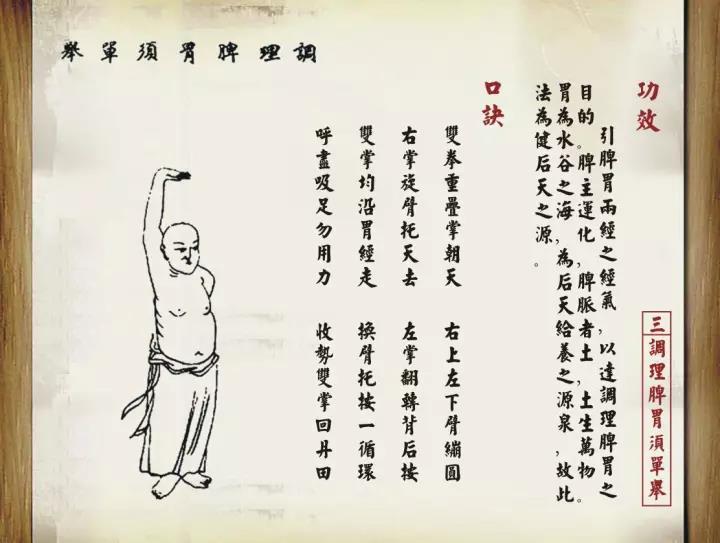 三調理脾胃須單舉
功效
引脾胃兩經之經氣,以達調理脾胃之
目的。脾主運化,脾脈者土,土生萬物。
胃為水谷之海,為后天給養之源泉,故此
法為健后天之源。
口訣
雙拳重疊掌朝天 右上左下臂繃圓
右掌旋臂托天去 左掌翻轉背后按
雙掌均沿胃經走 換臂托按一循環
呼盡吸足勿用力 收勢雙掌回丹田
調理脾胃須單舉